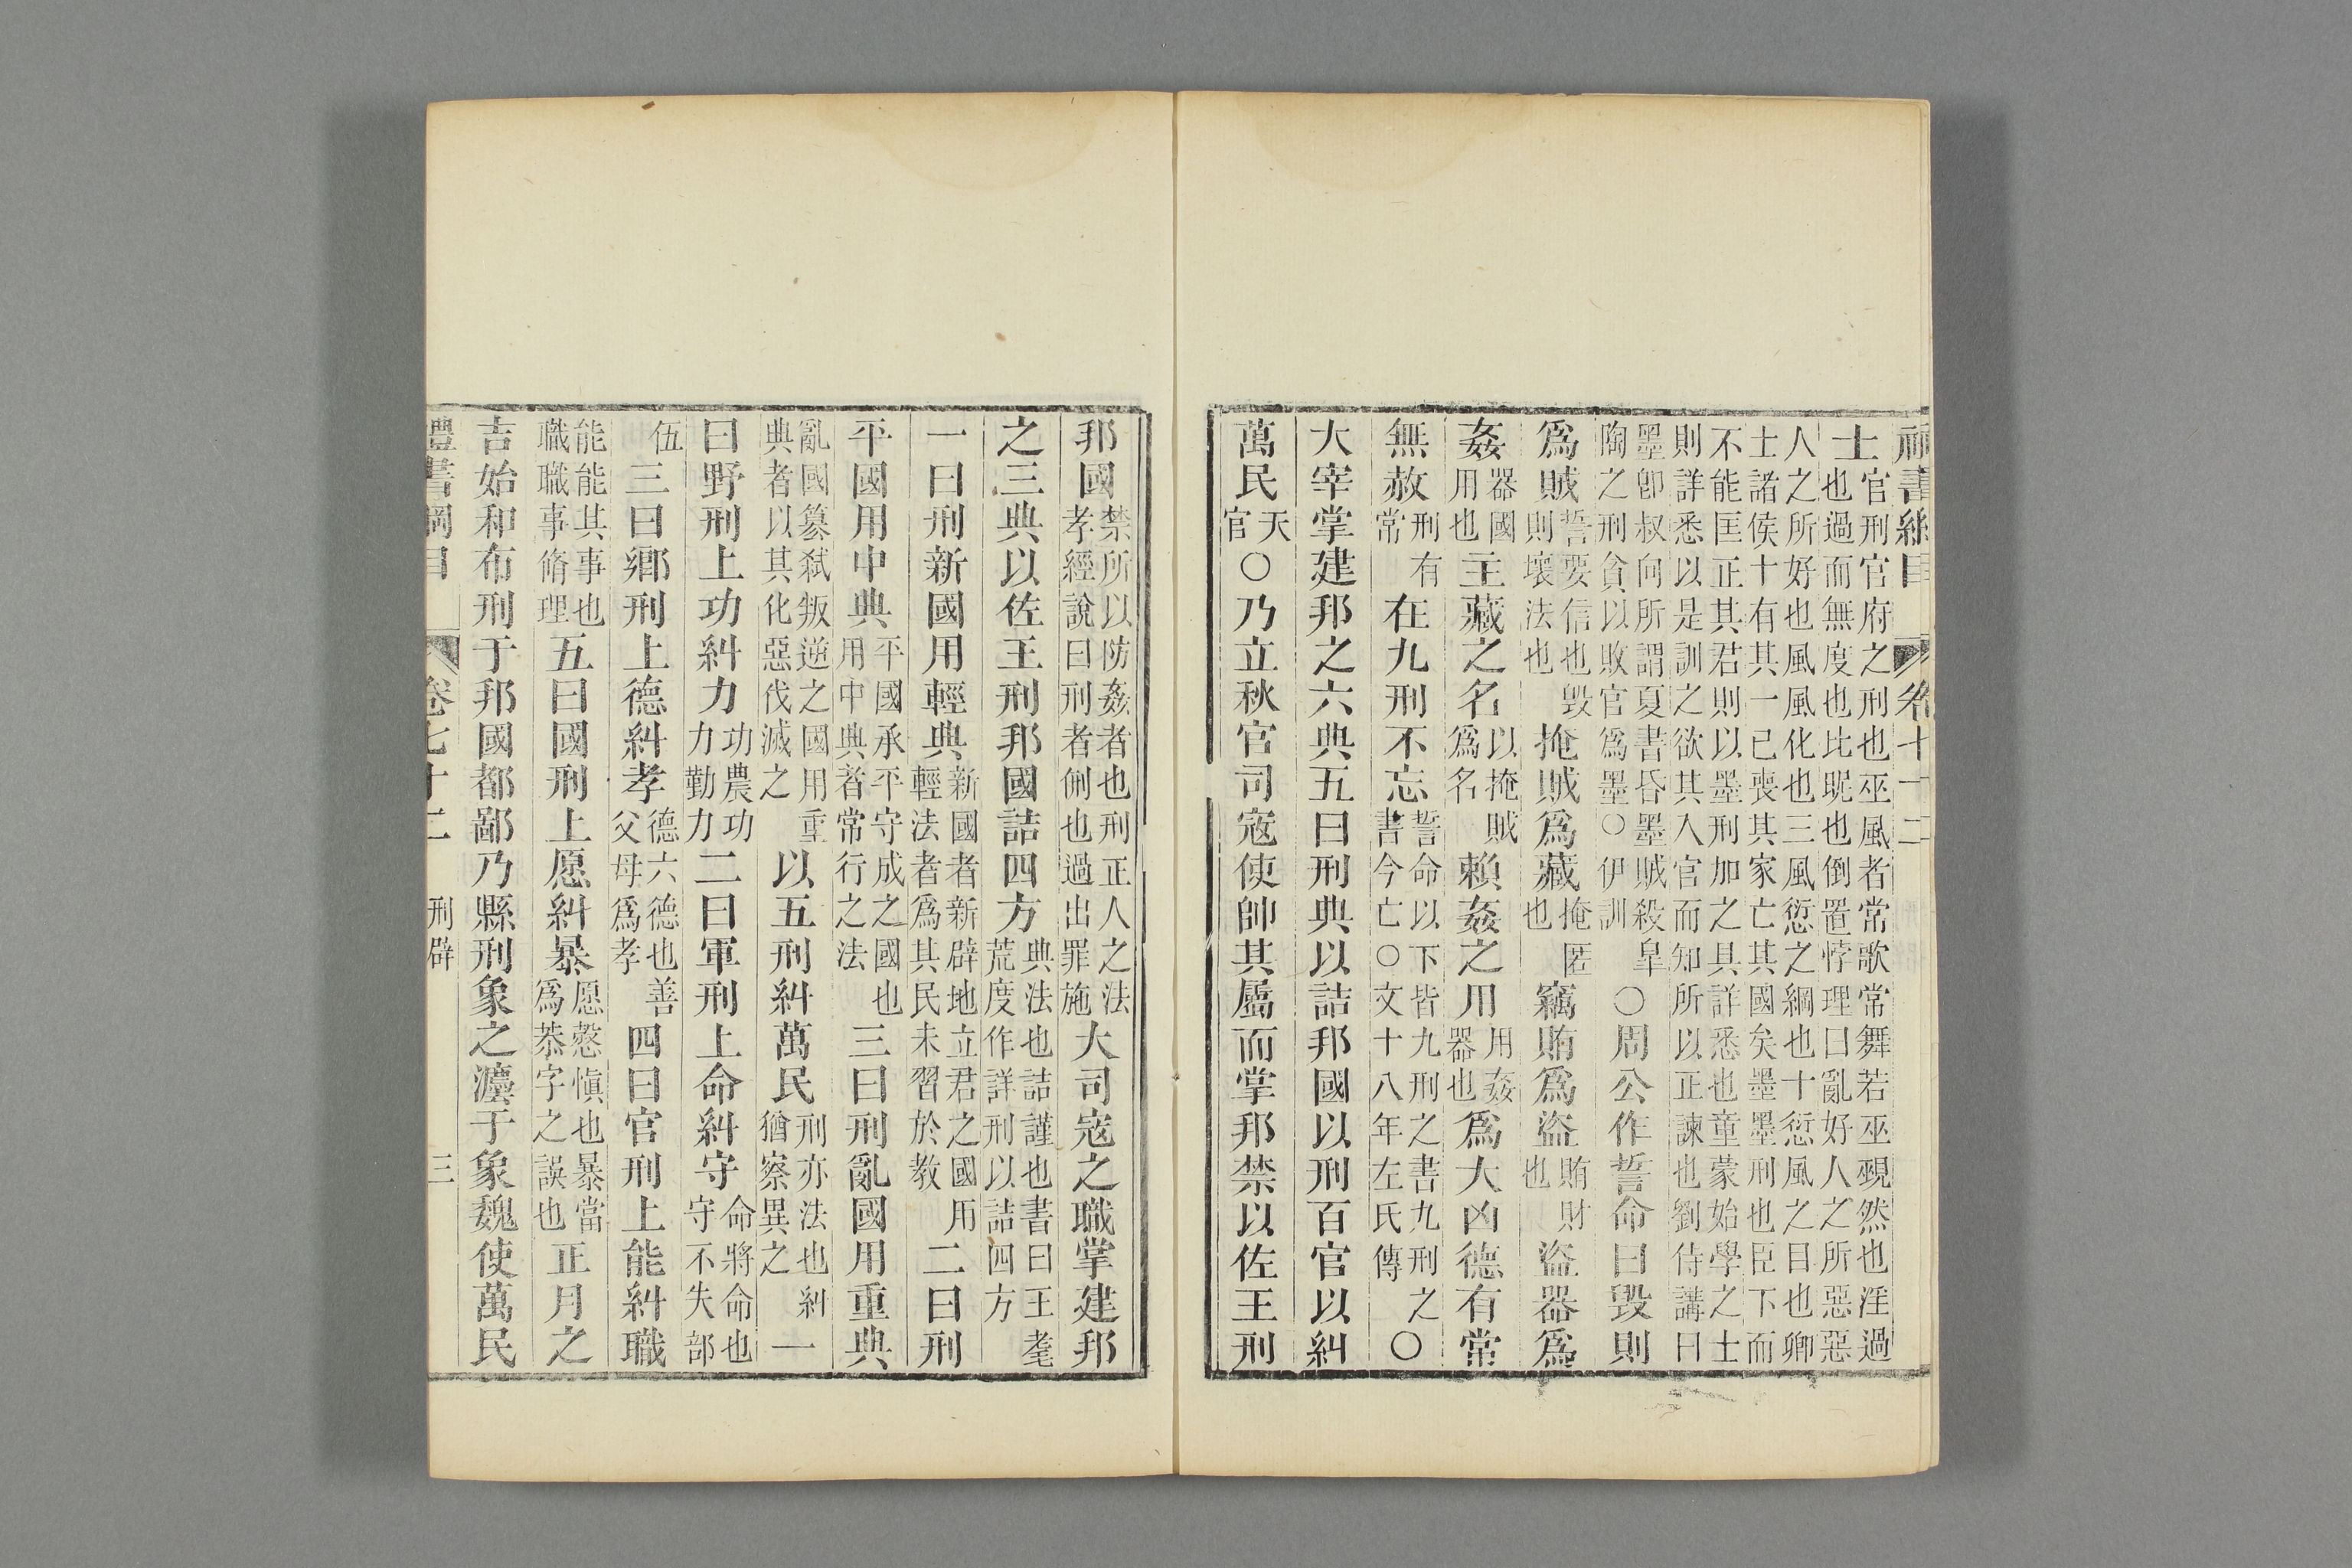 禮書綱目 卷七十二
士官刑官府之刑也巫風者常歌常舞若巫覡然也淫過
也過而無度也比昵也倒置悖理曰亂好人之所惡惡
人之所好也風風化也三風愆之綱也十愆風之目也卿
士諸侯十有其一已喪其家亡其國矣墨墨刑也臣下而
不能匡正其君則以墨刑加之具詳悉也童蒙始學之士
則詳悉以是訓之欲其入官而知所以正諫也劉侍講曰
墨卽叔向所謂夏書昏墨賊殺皐陶之刑貪以敗官爲墨○伊訓○周公作誓命曰毀則
爲賊誓要信也毀則壞法也掩賊爲藏掩匿也竊賄爲盜賄財也盜器爲
姦器國用也主藏之名以掩賊爲名賴姦之用用姦器也爲大凶德有常
無赦刑有常在九刑不忘誓命以下皆九刑之書九刑之書今亡○文十八年左氏傳○
大宰掌建邦之六典五曰刑典以詰邦國以刑百官以糾
萬民天官○乃立秋官司寇使帥其屬而掌邦禁以佐王刑
邦國禁所以防姦者也刑正人之法孝經說曰刑者侀也過出罪施大司寇之職掌建邦
之三典以佐王刑邦國詰四方典法也詰謹也書曰王耄荒度作詳刑以詰四方
一曰刑新國用輕典新國者新辟地立君之國用輕法者爲其民未習於教二曰刑
平國用中典平國承平守成之國也用中典者常行之法三曰刑亂國用重典
亂國篡弒叛逆之國用重典者以其化惡伐滅之以五刑糾萬民刑亦法也糾猶察異之一
曰野刑上功糾力功農功力勤力二曰軍刑上命糾守命將命也守不失部
伍三曰鄉刑上德糾孝德六德也善父母爲孝四曰官刑上能糾職
能能其事也職職事脩理五曰國刑上愿糾暴愿慤愼也暴當爲恭字之誤也正月之
吉始和布刑于邦國都鄙乃縣刑象之灋于象魏使萬民
禮書綱目 卷七十二 刑辟 三